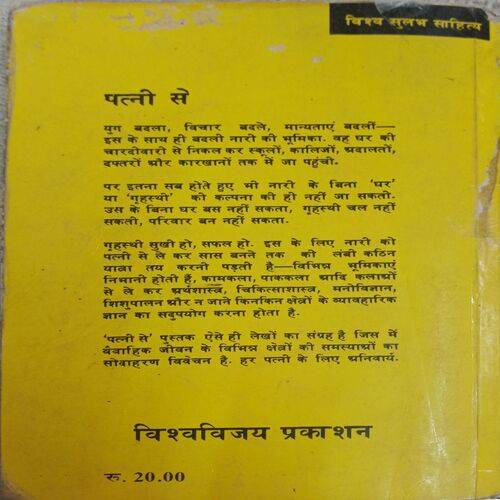 विश्व सुलभ साहित्य
पत्नी से
युग बदला, विचार बदले, मान्यताएं बदलीं—
इस के साथ ही बदली नारी की भूमिका. वह घर की
चारदीवारी से निकल कर स्कूलों, कालिजों, अदालतों,
दफ्तरों और कारखानों तक में जा पहुंची.
पर इतना सब होते हुए भी नारी के बिना 'घर'
या 'गृहस्थी' की कल्पना की ही नहीं जा सकती.
उस के बिना घर बस नहीं सकता, गृहस्थी चल नहीं
सकती, परिवार बन नहीं सकता.
गृहस्थी सुखी हो, सफल हो. इस के लिए नारी को
पत्नी से ले कर सास बनने तक की लंबी कठिन
यात्रा तय करनी पड़ती है—विभिन्न भूमिकाएं
निभानी होती हैं, कामकला, पाककला आदि कलाओं
से ले कर अर्थशास्त्र, चिकित्साशास्त्र, मनोविज्ञान,
शिशुपालन और न जाने किनकिन क्षेत्रों के व्यावहारिक
ज्ञान का सदुपयोग करना होता है.
'पत्नी से' पुस्तक ऐसे ही लेखों का संग्रह है जिस में
वैवाहिक जीवन के विभिन्न क्षेत्रों की समस्याओं का
सोदाहरण विवेचन है. हर पत्नी के लिए अनिवार्य.
विश्वविजय प्रकाशन
रु. 20.00